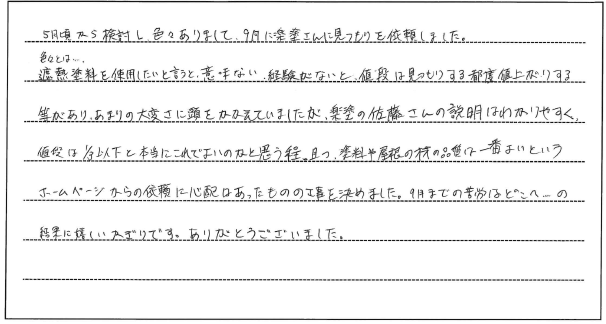 5月頃から検討し、色々ありまして、9月に楽塗さんに見つもりを依頼しました。
色々とは…、
遮熱塗料を使用したいと言うと、意味ない、経験がないと、値段は見つもりする都度値上がりする
等があり、あまりの大変さに頭をかかえていましたが、楽塗の佐藤さんの説明はわかりやすく、
値段は1/2以下と本当にこれでよいのかと思う程。且つ、塗料や屋根の材の品質は一番よいという
ホームページからの依頼に心配はあったものの工事を決めました。9月までの苦労はどこへ…の
結果に嬉しいかぎりです。ありがとうございました。